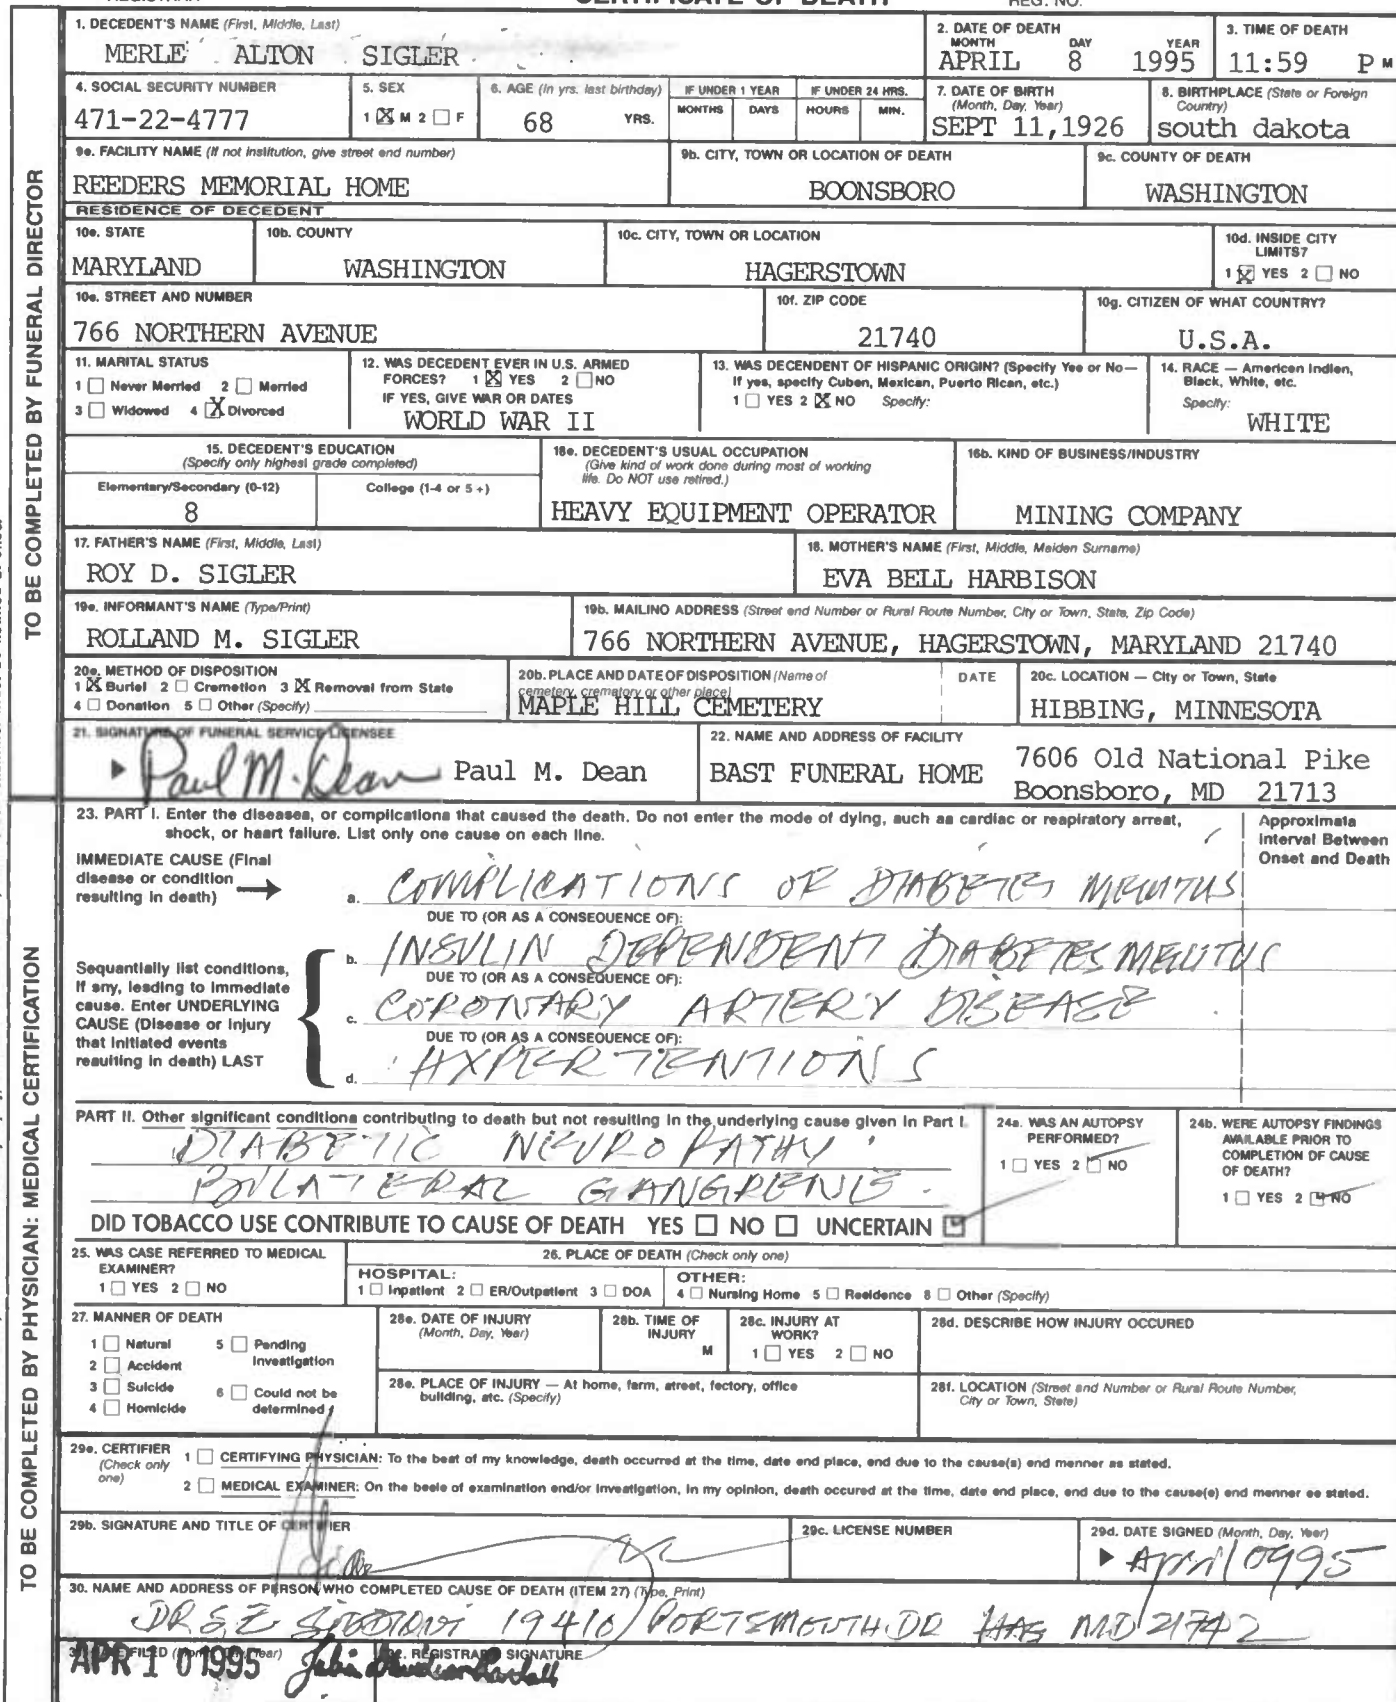 REGISTRAR CERTIFICATE OF DEATH REG. NO.
1. DECEDENT'S NAME (First, Middle, Last)
MERLE ALTON SIGLER
2. DATE OF DEATH
MONTH DAY YEAR
APRIL 8 1995
3. TIME OF DEATH
11:59 P M
4. SOCIAL SECURITY NUMBER
471-22-4777
5. SEX
1 ☒ M 2 ☐ F
6. AGE (in yrs. last birthday)
68 YRS.
IF UNDER 1 YEAR
MONTHS DAYS
IF UNDER 24 HRS.
HOURS MIN.
7. DATE OF BIRTH
(Month, Day, Year)
SEPT 11,1926
8. BIRTHPLACE (State or Foreign
Country)
south dakota
9e. FACILITY NAME (If not institution, give street end number)
REEDERS MEMORIAL HOME
9b. CITY, TOWN OR LOCATION OF DEATH
BOONSBORO
9c. COUNTY OF DEATH
WASHINGTON
RESIDENCE OF DECEDENT
10e. STATE
MARYLAND
10b. COUNTY
WASHINGTON
10c. CITY, TOWN OR LOCATION
HAGERSTOWN
10d. INSIDE CITY
LIMITS?
1 ☒ YES 2 ☐ NO
10e. STREET AND NUMBER
766 NORTHERN AVENUE
10f. ZIP CODE
21740
10g. CITIZEN OF WHAT COUNTRY?
U.S.A.
11. MARITAL STATUS
1 ☐ Never Merried 2 ☐ Merried
3 ☐ Widowed 4 ☒ Divorced
12. WAS DECEDENT EVER IN U.S. ARMED
FORCES? 1 ☒ YES 2 ☐ NO
IF YES, GIVE WAR OR DATES
WORLD WAR II
13. WAS DECENDENT OF HISPANIC ORIGIN? (Specify Yes or No—
If yes, specify Cuben, Mexican, Puerto Rican, etc.)
1 ☐ YES 2 ☒ NO Specify:
14. RACE — American Indien,
Bleck, White, etc.
Specify:
WHITE
15. DECEDENT'S EDUCATION
(Specify only highest grade completed)
Elementary/Secondary (0-12) College (1-4 or 5 +)
8
16e. DECEDENT'S USUAL OCCUPATION
(Give kind of work done during most of working
life. Do NOT use retired.)
HEAVY EQUIPMENT OPERATOR
16b. KIND OF BUSINESS/INDUSTRY
MINING COMPANY
17. FATHER'S NAME (First, Middle, Last)
ROY D. SIGLER
18. MOTHER'S NAME (First, Middle, Maiden Surname)
EVA BELL HARBISON
19e. INFORMANT'S NAME (Type/Print)
ROLLAND M. SIGLER
19b. MAILING ADDRESS (Street end Number or Rural Route Number, City or Town, State, Zip Code)
766 NORTHERN AVENUE, HAGERSTOWN, MARYLAND 21740
20e. METHOD OF DISPOSITION
1 ☒ Buriel 2 ☐ Cremetion 3 ☒ Removal from State
4 ☐ Donation 5 ☐ Other (Specify)
20b. PLACE AND DATE OF DISPOSITION (Name of
cemetery, crematory or other place)
DATE
MAPLE HILL CEMETERY
20c. LOCATION — City or Town, State
HIBBING, MINNESOTA
21. SIGNATURE OF FUNERAL SERVICE LICENSEE
Paul M. Dean Paul M. Dean
22. NAME AND ADDRESS OF FACILITY
BAST FUNERAL HOME 7606 Old National Pike
Boonsboro, MD 21713
TO BE COMPLETED BY FUNERAL DIRECTOR
23. PART I. Enter the diseases, or complications that caused the death. Do not enter the mode of dying, such as cardiac or respiratory arrest,
shock, or heart failure. List only one cause on each line.
Approximate
Interval Between
Onset and Death
IMMEDIATE CAUSE (Final
disease or condition
resulting in death) →
a. COMPLICATIONS OF DIABETES MELLITUS
DUE TO (OR AS A CONSEQUENCE OF):
b. INSULIN DEPENDENT DIABETES MELLITUS
DUE TO (OR AS A CONSEQUENCE OF):
c. CORONARY ARTERY DISEASE
DUE TO (OR AS A CONSEQUENCE OF):
d. HYPERTENTIONS
Sequentially list conditions,
if any, leading to immediate
cause. Enter UNDERLYING
CAUSE (Disease or injury
that initiated events
resulting in death) LAST
PART II. Other significant conditions contributing to death but not resulting in the underlying cause given in Part I.
DIABETIC NEUROPATHY
BILATERAL GANGRENE.
DID TOBACCO USE CONTRIBUTE TO CAUSE OF DEATH YES ☐ NO ☐ UNCERTAIN ☑
24a. WAS AN AUTOPSY
PERFORMED?
1 ☐ YES 2 ☑ NO
24b. WERE AUTOPSY FINDINGS
AVAILABLE PRIOR TO
COMPLETION OF CAUSE
OF DEATH?
1 ☐ YES 2 ☑ NO
25. WAS CASE REFERRED TO MEDICAL
EXAMINER?
1 ☐ YES 2 ☐ NO
26. PLACE OF DEATH (Check only one)
HOSPITAL:
1 ☐ Inpatient 2 ☐ ER/Outpatient 3 ☐ DOA
OTHER:
4 ☐ Nursing Home 5 ☐ Residence 8 ☐ Other (Specify)
27. MANNER OF DEATH
1 ☐ Natural 5 ☐ Pending
Investigation
2 ☐ Accident
3 ☐ Suicide 6 ☐ Could not be
determined
4 ☐ Homicide
28e. DATE OF INJURY
(Month, Day, Year)
28b. TIME OF
INJURY
M
28c. INJURY AT
WORK?
1 ☐ YES 2 ☐ NO
28d. DESCRIBE HOW INJURY OCCURED
28e. PLACE OF INJURY — At home, farm, street, fectory, office
building, etc. (Specify)
28f. LOCATION (Street and Number or Rural Route Number,
City or Town, State)
29e. CERTIFIER
(Check only
one)
1 ☐ CERTIFYING PHYSICIAN: To the best of my knowledge, death occurred at the time, date end place, end due to the cause(s) end menner as stated.
2 ☐ MEDICAL EXAMINER: On the basis of examination end/or investigation, in my opinion, death occured at the time, date end place, end due to the cause(e) end menner ee stated.
29b. SIGNATURE AND TITLE OF CERTIFIER
29c. LICENSE NUMBER
29d. DATE SIGNED (Month, Day, Year)
April 0995
30. NAME AND ADDRESS OF PERSON WHO COMPLETED CAUSE OF DEATH (ITEM 27) (Type, Print)
DR S.Z. 19410 PORTSMOUTH DR HAG MD 21742
31. DATE FILED (Month, Day, Year)
APR 10 1995
32. REGISTRAR'S SIGNATURE
TO BE COMPLETED BY PHYSICIAN: MEDICAL CERTIFICATION